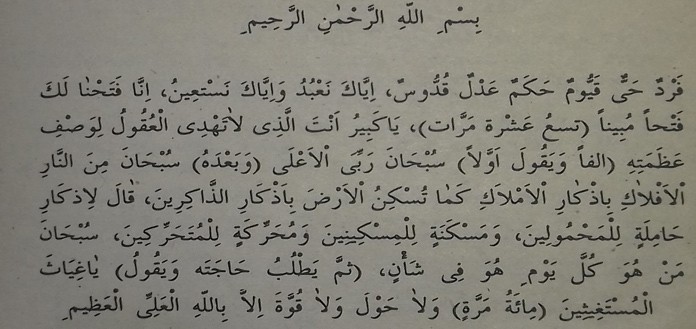 بِسْمِ اللّٰهِ الرَّحْمٰنِ الرَّحِيمِ
فَرْدٌ حَىٌّ قَيُّومٌ حَكَمٌ عَدْلٌ قُدُّوسٌ، اِيَّاكَ نَعْبُدُ وَاِيَّاكَ نَسْتَعِينُ، اِنَّا فَتَحْنٰا لَكَ
فَتْحاً مُبِيناً (تسعُ عَشْرة مَرَّات)، يٰاكَبِيرُ اَنْتَ الَّذِى لاٰتَهْدِى الْعُقُولُ لِوَصْفِ
عَظَمَتِهِ (الفاً وَيَقُول اَوَّلاً) سُبْحَانَ رَبِّىَ اْلاَعْلَى (وَبَعْدَهُ) سُبْحَانَ مِنَ النَّارِ
اْلاَفْلاٰكِ بِاِذْكٰارِ اْلاَمْلاٰكِ كَمٰا تُسْكِنُ اْلاَرْضَ بِاَذْكَارِ الذَّاكِرِينَ، قٰالَ لِاِذكٰارِ
حَامِلَةٍ لِلْمَحْمُولِينَ، وَمَسْكَنَةٍ لِلْمِسْكِينِينَ وَمُحَرِّكَةٍ لِلْمُتَحَرِّكِينَ، سُبْحَانَ
مَنْ هُوَ كُلَّ يَوْمٍ هُوَ فِى شَأْنٍ، (ثمَّ يَطْلُبُ حَاجَتَه وَيَقُولُ) يٰاغِيَاثَ
الْمُسْتَغِيثِينَ (مِائَةُ مَرَّةٍ) وَلاٰ حَوْلَ وَلاٰ قُوَّةَ اِلاَّ بِاللّٰهِ الْعَلِىِّ الْعَظِيمِ